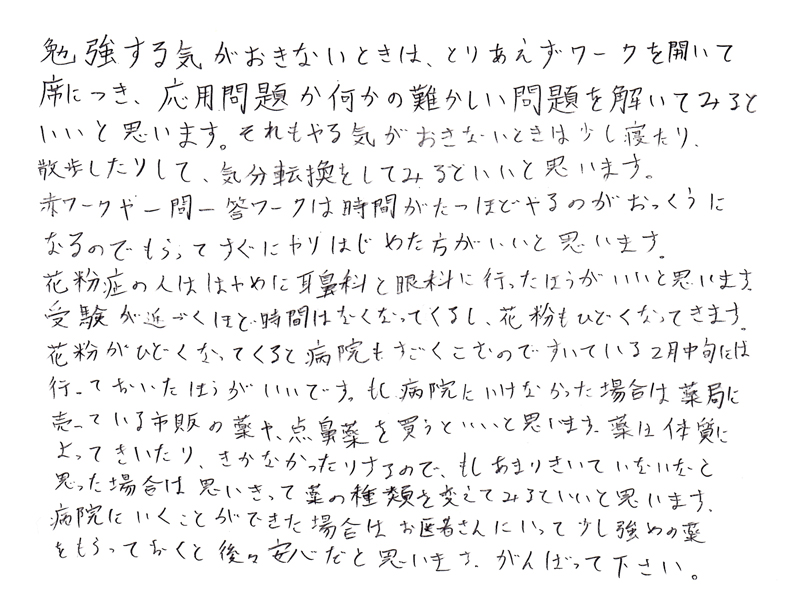 勉強する気がおきないときは、とりあえずワークを開いて
席につき、応用問題か何かの難かしい問題を解いてみると
いいと思います。それもやる気がおきないときは少し寝たり、
散歩したりして、気分転換をしてみるといいと思います。
赤ワークや一問一答ワークは時間がたつほどやるのがおっくうに
なるのでもらってすぐにやりはじめた方がいいと思います。
花粉症の人ははやめに耳鼻科と眼科に行ったほうがいいと思います
受験が近づくほど時間はなくなってくるし、花粉もひどくなってきます。
花粉がひどくなってくると病院もすごくこむのですいている2月中旬には
行っておいたほうがいいです。もし病院にいけなかった場合は薬局に
売っている市販の薬や、点鼻薬を買うといいと思います。薬は体質に
よってきいたり、きかなかったりするので、もしあまりきいていないなと
思った場合は思いきって薬の種類を変えてみるといいと思います。
病院にいくことができた場合はお医者さんにいって少し強めの薬
をもらっておくと後々安心だと思います。がんばって下さい。